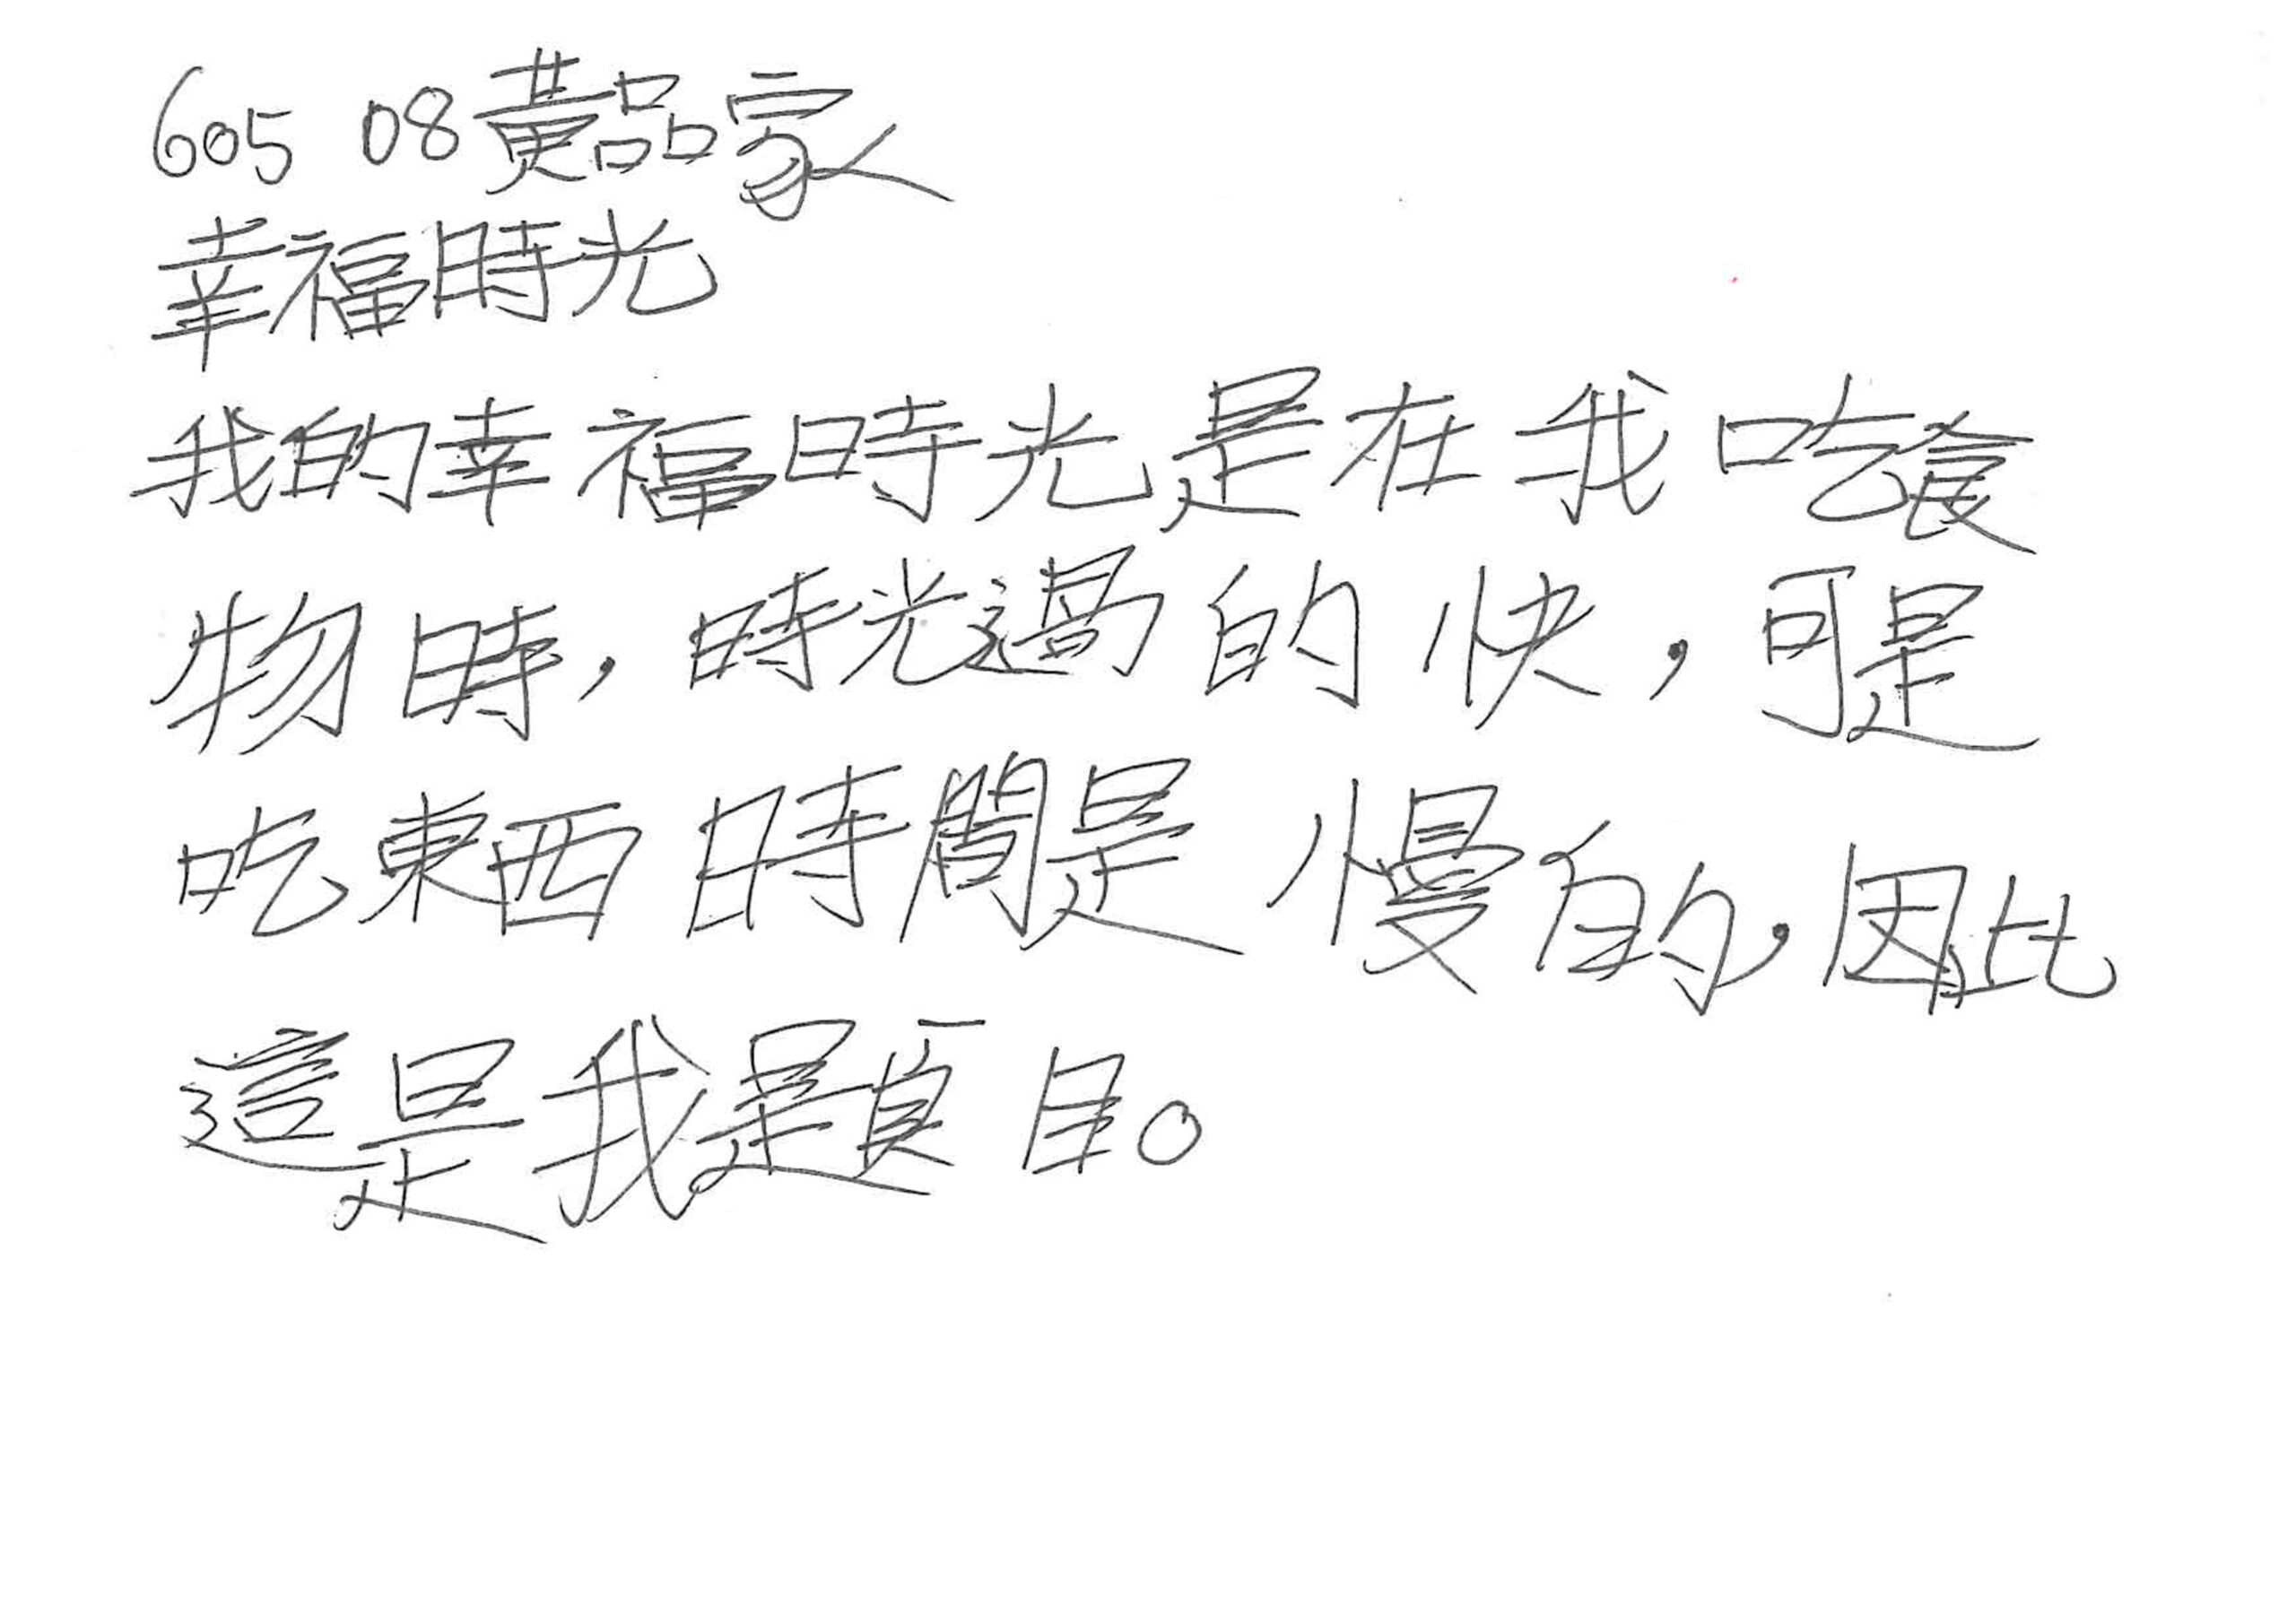 605 08黃品家
幸福時光
我的幸福時光是在我吃食
物時，時光過的快，可是
吃東西時間是慢的，因此
這是我題目。